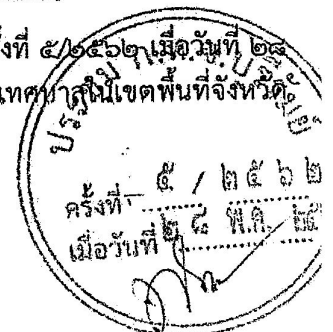 ครั้งที่ ๕/๒๕๖๒ เมื่อวันที่ ๒๘
เทศบาลในเขตพื้นที่จังหวัด
ครั้งที่ ๕ / ๒๕๖๒
เมื่อวันที่ ๒๘ พ.ค. ๒๕